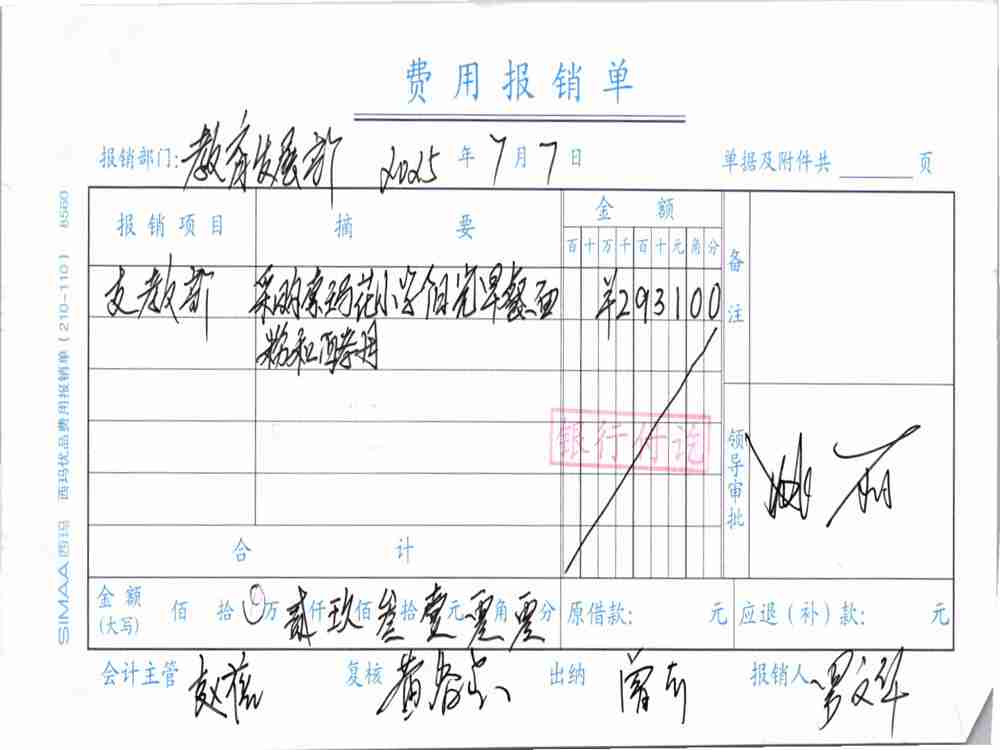 费用报销单
报销部门: 教育发展部 2025 年 7 月 7 日 单据及附件共 页
报销项目 摘要 金额 备注
百十万千百十元角分
支教部 采购索玛花小学阳光早餐面 ¥293100
粉和酵母
银行付讫
领导审批
合计
金额(大写) 佰 拾 万 贰仟玖佰叁拾壹元零角零分 原借款: 元 应退(补)款: 元
会计主管 复核 黄春 出纳 曾 报销人 罗文华
SIMAA 西玛 西玛优品费用报销单(210-110) 8560